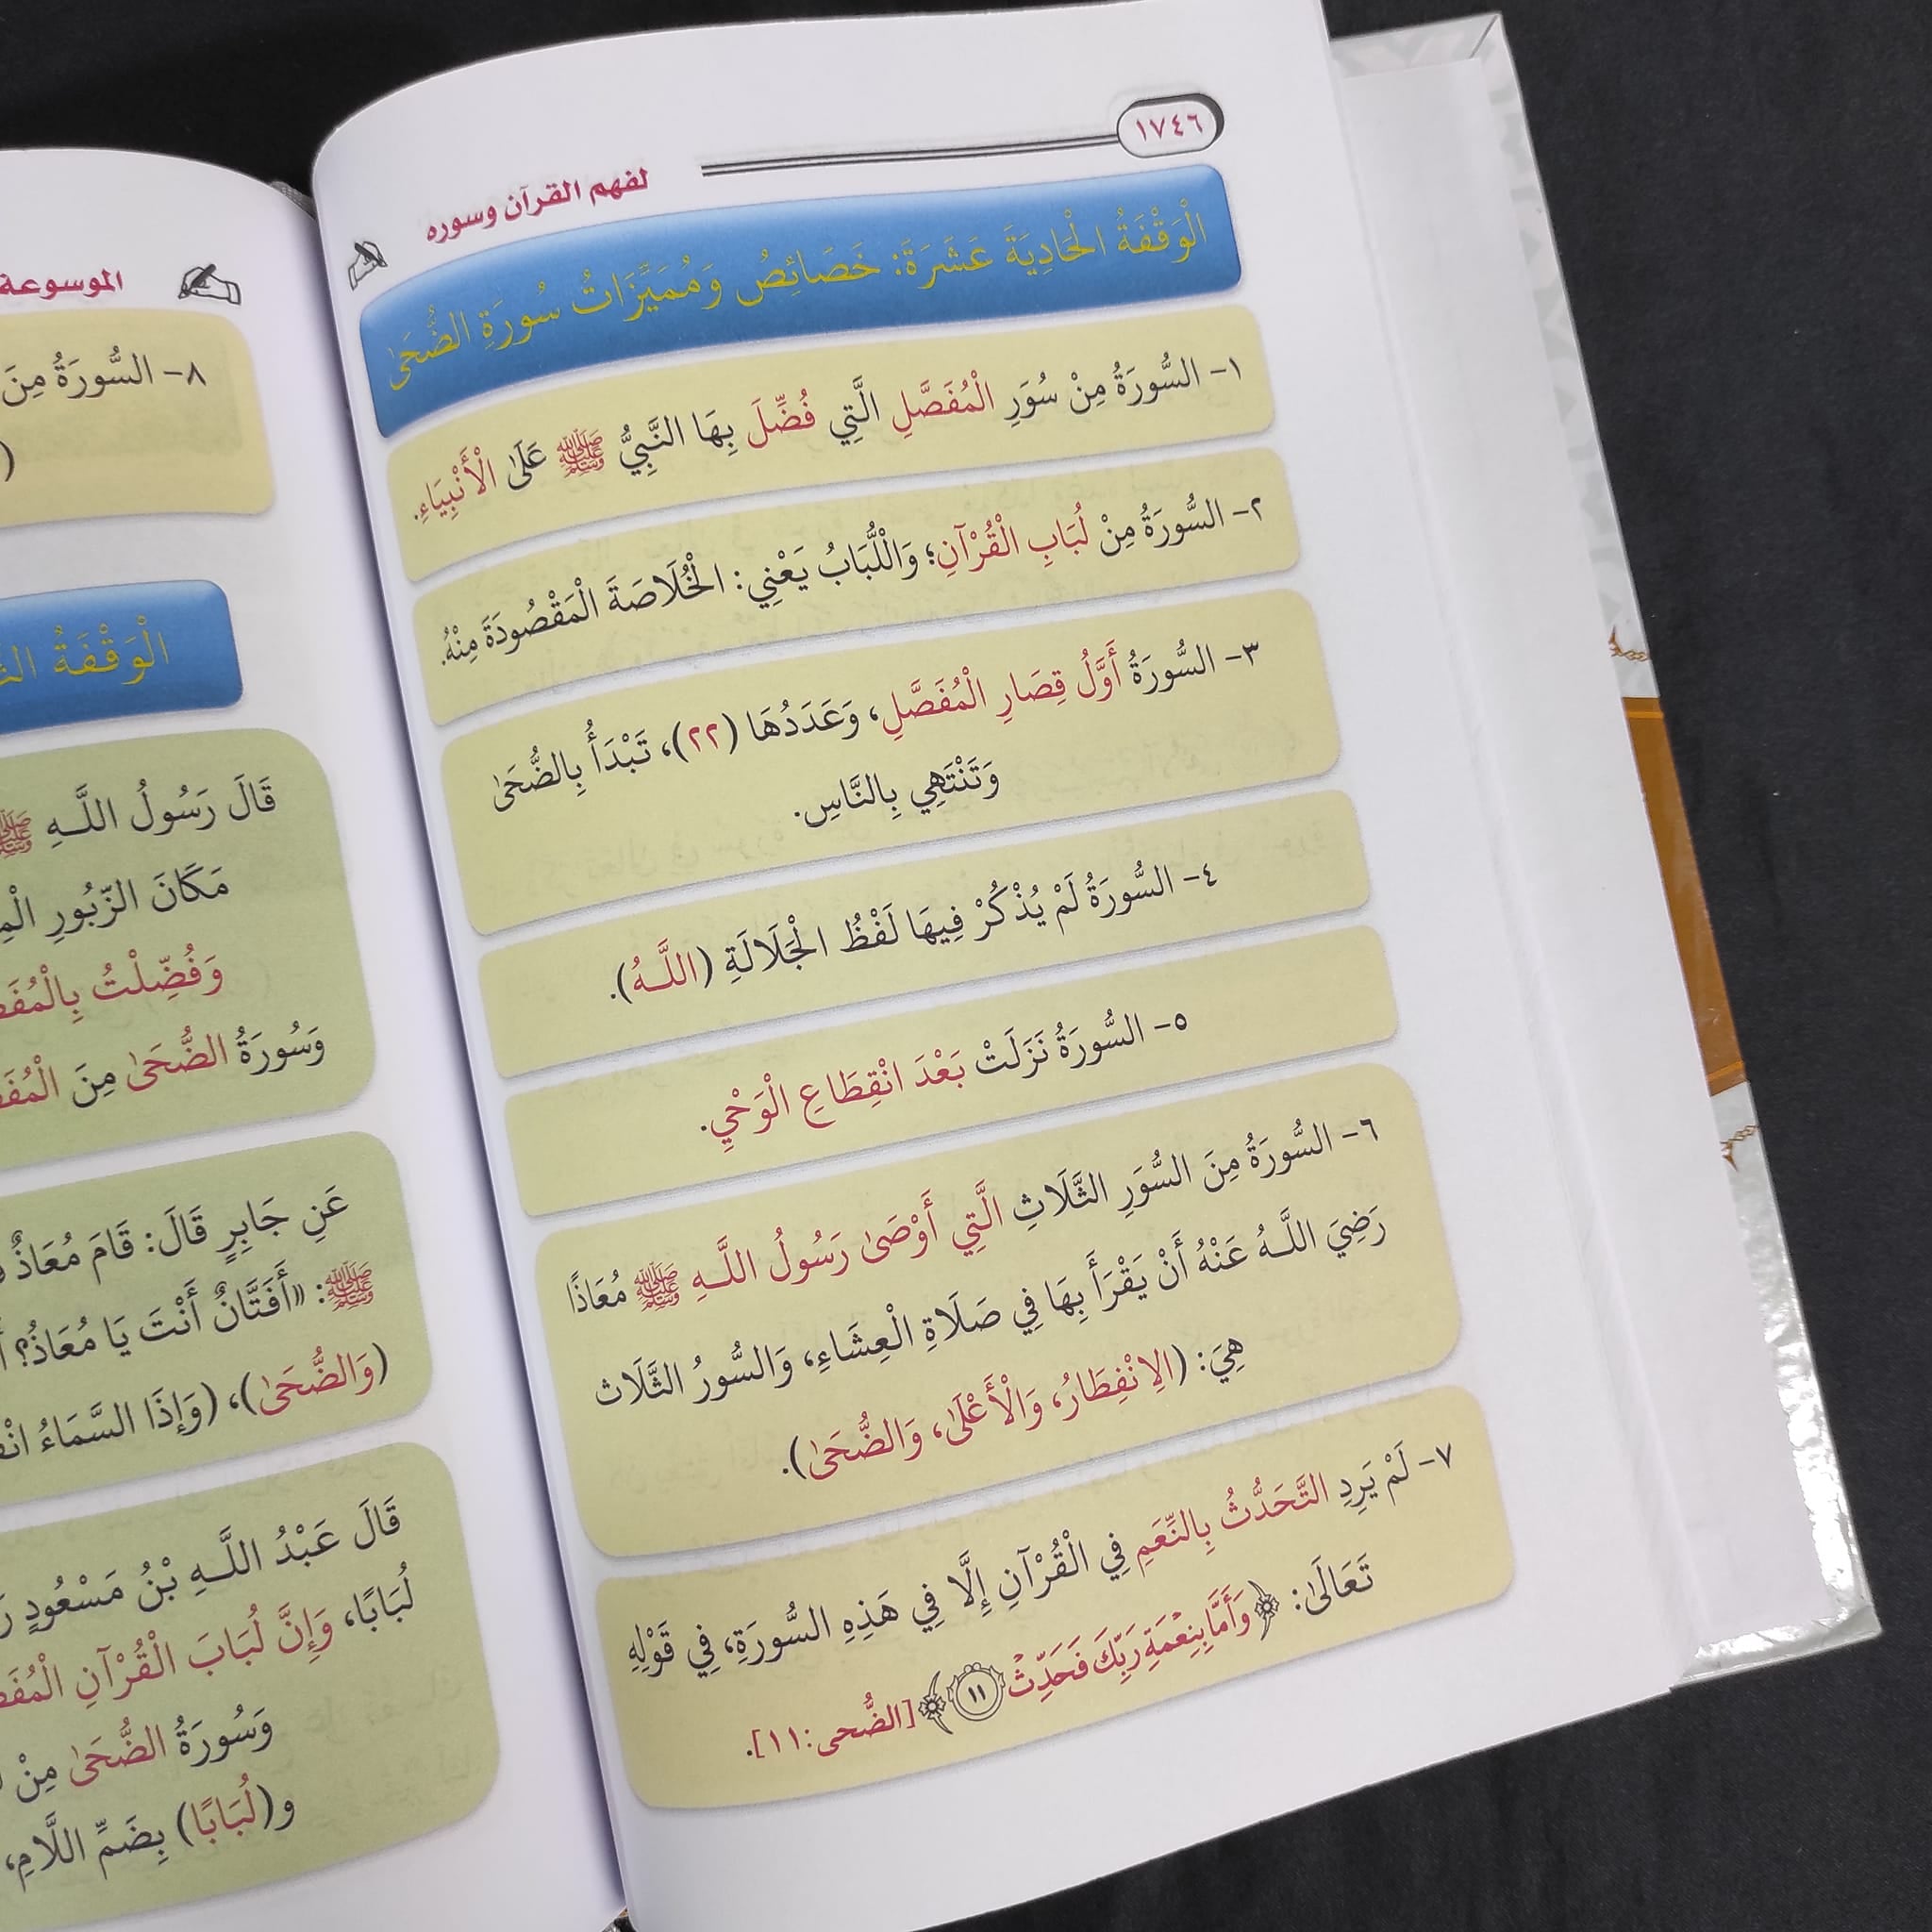 ١٧٤٦
لفهم القرآن وسوره
الْوَقْفَةُ الْحَادِيَةَ عَشَرَةَ: خَصَائِصُ وَمُمَيِّزَاتُ سُورَةِ الضُّحَىٰ
١- السُّورَةُ مِنْ سُوَرِ الْمُفَصَّلِ الَّتِي فُضِّلَ بِهَا النَّبِيُّ ﷺ عَلَىٰ الْأَنْبِيَاءِ.
٢- السُّورَةُ مِنْ لُبَابِ الْقُرْآنِ؛ وَاللُّبَابُ يَعْنِي: الْخُلَاصَةَ الْمَقْصُودَةَ مِنْهُ.
٣- السُّورَةُ أَوَّلُ قِصَارِ الْمُفَصَّلِ، وَعَدَدُهَا (٢٢)، تَبْدَأُ بِالضُّحَىٰ
وَتَنْتَهِي بِالنَّاسِ.
٤- السُّورَةُ لَمْ يُذْكَرْ فِيهَا لَفْظُ الْجَلَالَةِ (اللَّـهُ).
٥- السُّورَةُ نَزَلَتْ بَعْدَ انْقِطَاعِ الْوَحْيِ.
٦- السُّورَةُ مِنَ السُّوَرِ الثَّلَاثِ الَّتِي أَوْصَىٰ رَسُولُ اللَّـهِ ﷺ مُعَاذًا
رَضِيَ اللَّـهُ عَنْهُ أَنْ يَقْرَأَ بِهَا فِي صَلَاةِ الْعِشَاءِ، وَالسُّورُ الثَّلَاث
هِيَ: (الِانْفِطَارُ، وَالْأَعْلَىٰ، وَالضُّحَىٰ).
٧- لَمْ يَرِدِ التَّحَدُّثُ بِالنِّعَمِ فِي الْقُرْآنِ إِلَّا فِي هَذِهِ السُّورَةِ، فِي قَوْلِهِ
تَعَالَىٰ: ﴿وَأَمَّا بِنِعْمَةِ رَبِّكَ فَحَدِّثْ ١١﴾ [الضُّحى:١١].
الموسوعة
٨- السُّورَةُ مِنَ
الْوَقْفَةُ
قَالَ رَسُولُ اللَّـهِ ﷺ
مَكَانَ الزَّبُورِ
وَفُضِّلْتُ
وَسُورَةُ الضُّحَىٰ مِنَ
عَنِ جَابِرٍ قَالَ: قَامَ مُعَاذٌ
ﷺ: «أَفَتَّانٌ أَنْتَ يَا مُعَاذُ؟
(وَالضُّحَىٰ)، (وَإِذَا السَّمَاءُ
قَالَ عَبْدُ اللَّـهِ بْنُ مَسْعُودٍ
لُبَابًا، وَإِنَّ لُبَابَ الْقُرْآنِ
وَسُورَةُ الضُّحَىٰ مِنْ
و(لُبَابًا) بِضَمِّ اللَّامِ،